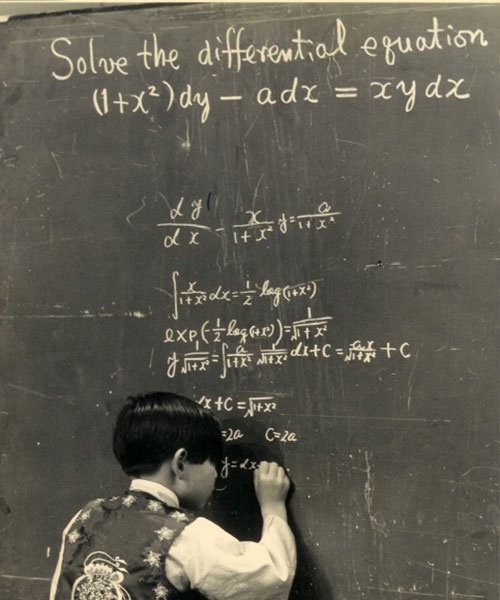 Solve the differential equation
(1+x²)dy − adx = xydx
dy/dx − x/(1+x²) y = a/(1+x²)
∫ x/(1+x²) dx = 1/2 log(1+x²)
exp(−1/2 log(1+x²)) = 1/√(1+x²)
y 1/√(1+x²) = ∫ a/(1+x²) 1/√(1+x²) dx + C = ax/√(1+x²) + C
x + C = √(1+x²)
=2a C=2a
y=ax